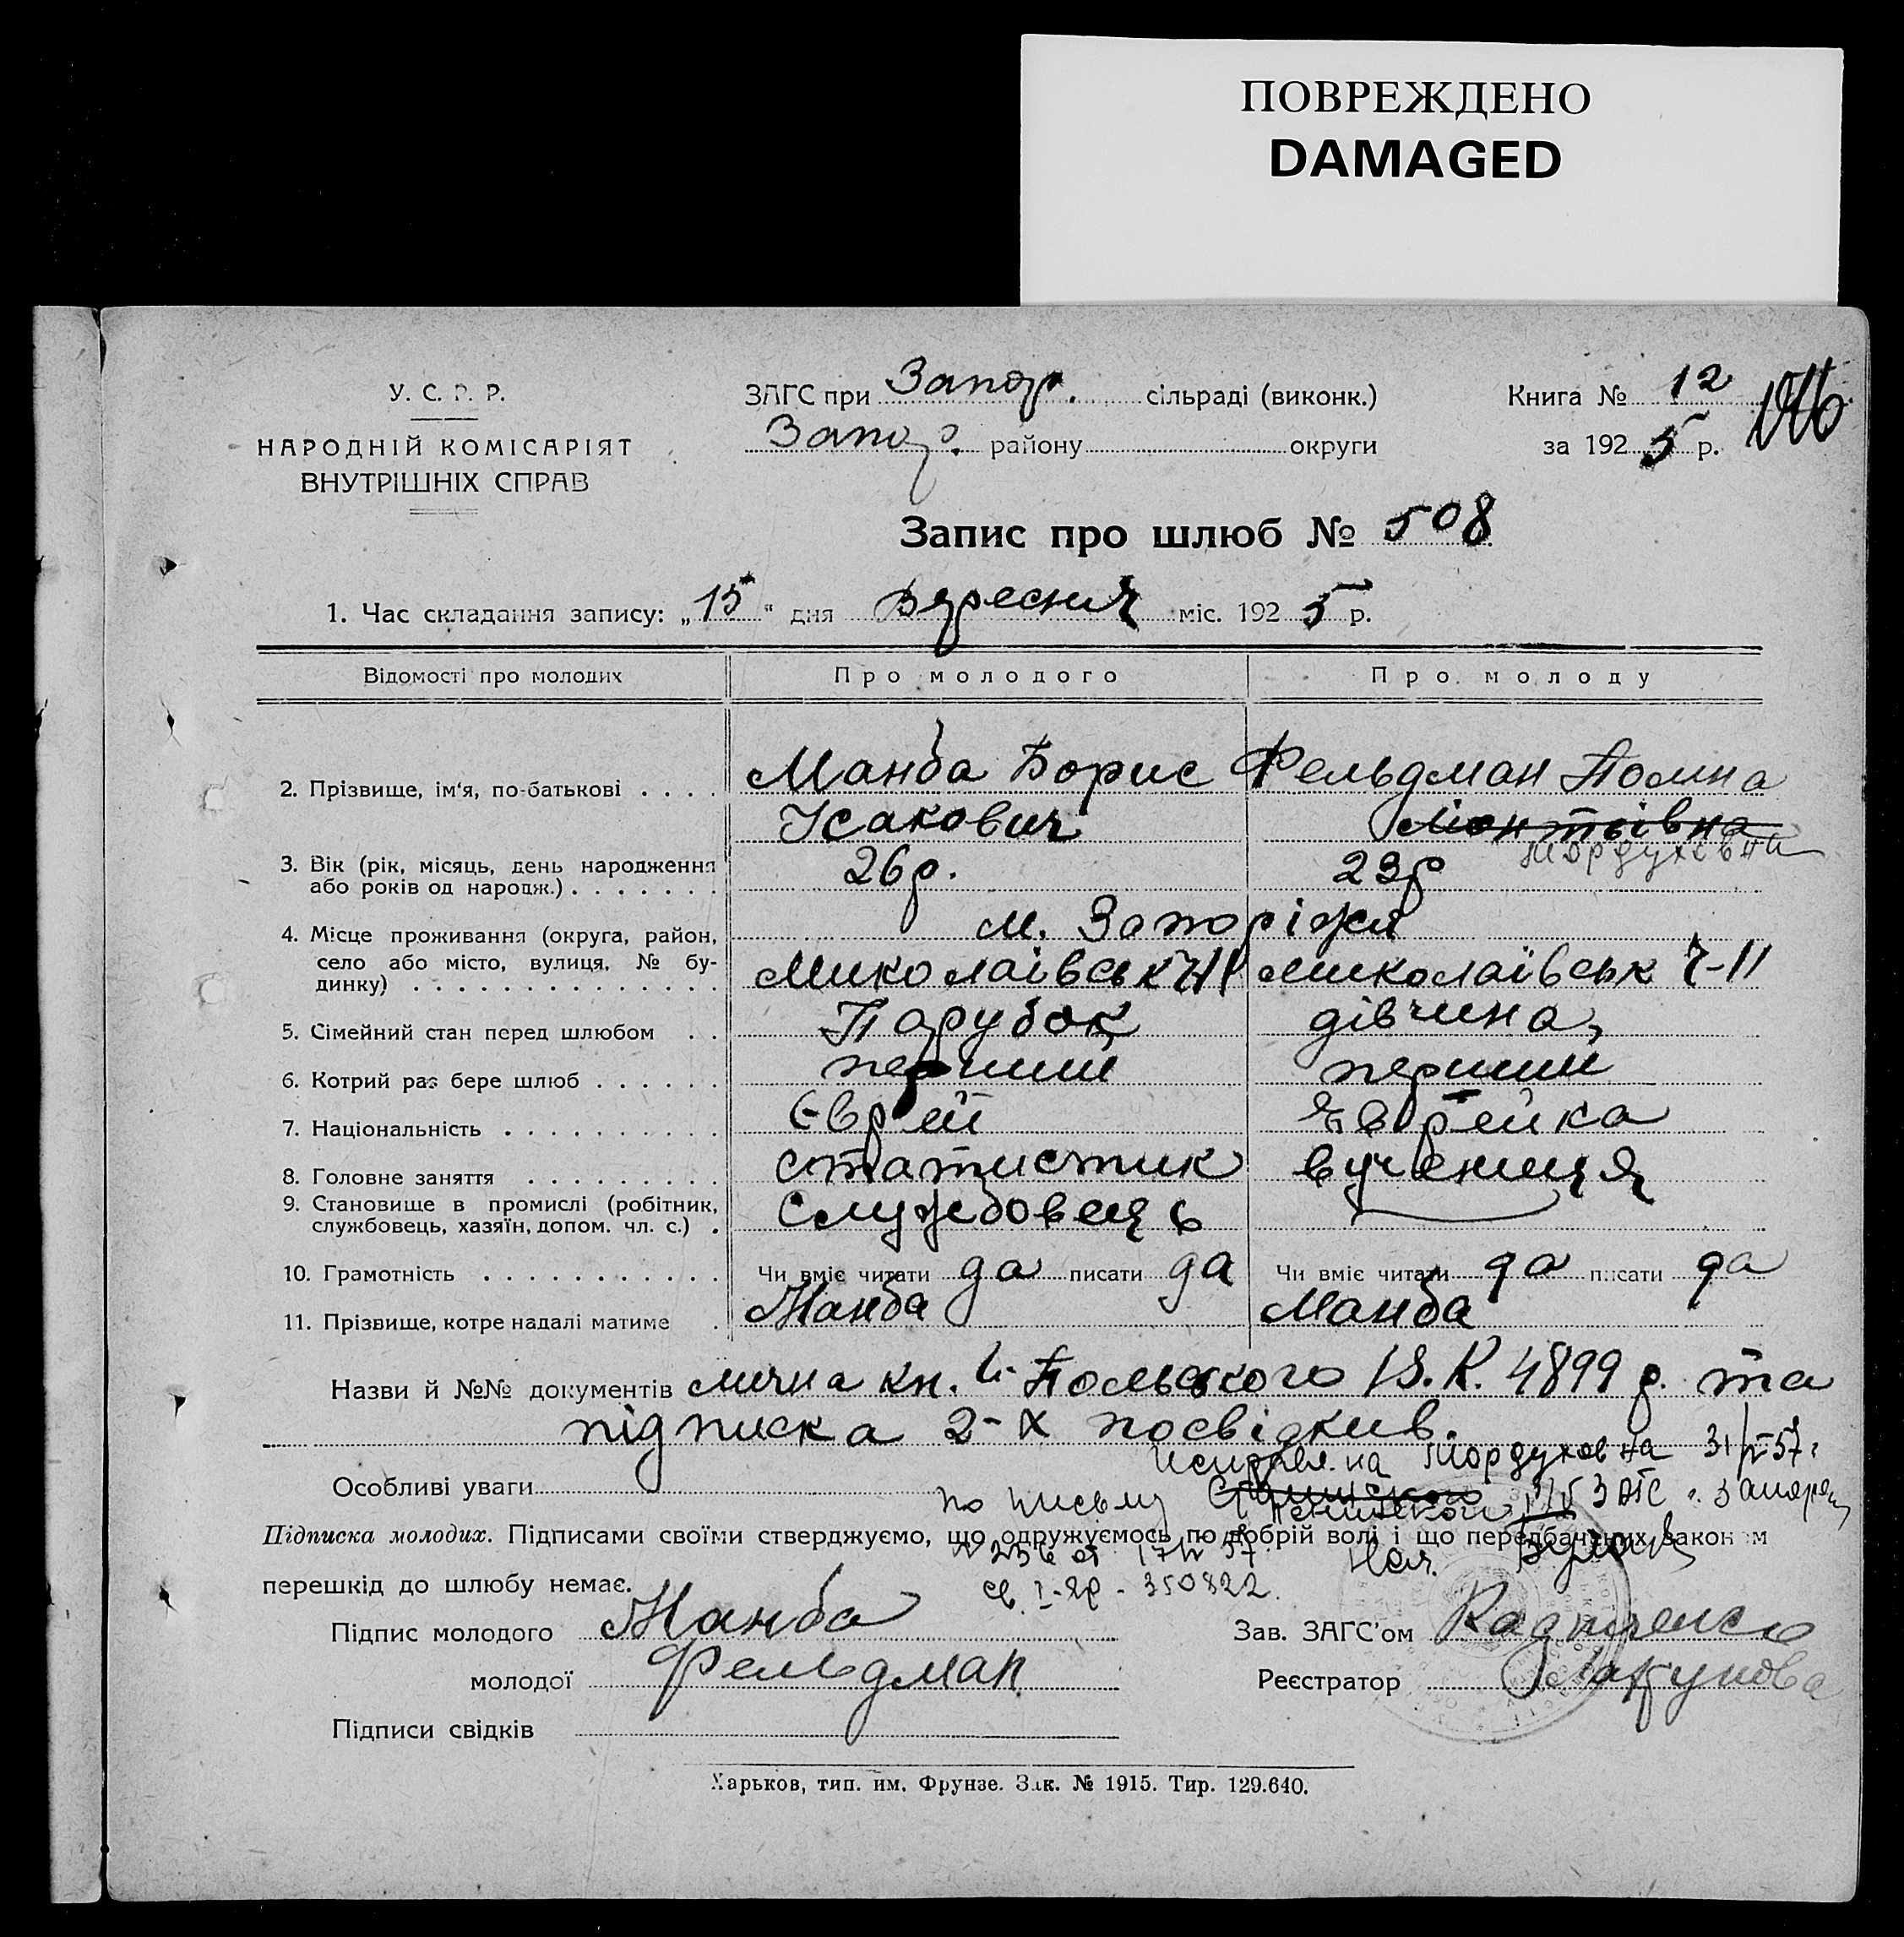 ПОВРЕЖДЕНО
DAMAGED
У. С. Р. Р.
НАРОДНІЙ КОМІСАРІЯТ
ВНУТРІШНІХ СПРАВ
ЗАГС при Запор. сільраді (виконк.)
Запор. району округи
Книга № 12
за 1925 р.
Запис про шлюб № 508
1. Час складання запису: „15“ дня Вересня міс. 1925 р.
Відомості про молодих Про молодого Про молоду
2. Прізвище, ім'я, по-батькові . . . . Манба Борис Фельдман Поліна
Ісакович Мордуховна
3. Вік (рік, місяць, день народження
або років од народж.) . . . . . . . 26р. 23р
4. Місце проживання (округа, район, м. Запоріжя
село або місто, вулиця, № бу-
динку) . . . . . . . . . . . . . . Миколаівськ 7-11 Миколаівськ 7-11
5. Сімейний стан перед шлюбом . . Парубок дівчина,
6. Котрий раз бере шлюб . . . . . . перший перший
7. Національність . . . . . . . . . . Єврей Єврейка
8. Головне заняття . . . . . . . . . статистик вучениця
9. Становище в промислі (робітник,
службовець, хазяїн, допом. чл. с.) . Службовець
10. Грамотність . . . . . . . . . . . Чи вміє читати да писати да Чи вміє читати да писати да
11. Прізвище, котре надалі матиме . Манба Манба
Назви й №№ документів лична кн. Польского 4899 р. та
підписка 2-х посвідкив.
Исправл. на Мордуховна 57г
Особливі уваги
по письму ЗАГС г.
Підписка молодих. Підписами своїми стверджуємо, що одружуємось по добрій волі і що передбачених законом
Нач.
перешкід до шлюбу немає.
350822
Підпис молодого Манба Зав. ЗАГС'ом
молодої Фельдман Реєстратор
Підписи свідків
Харьков, тип. им. Фрунзе. Зак. № 1915. Тир. 129.640.